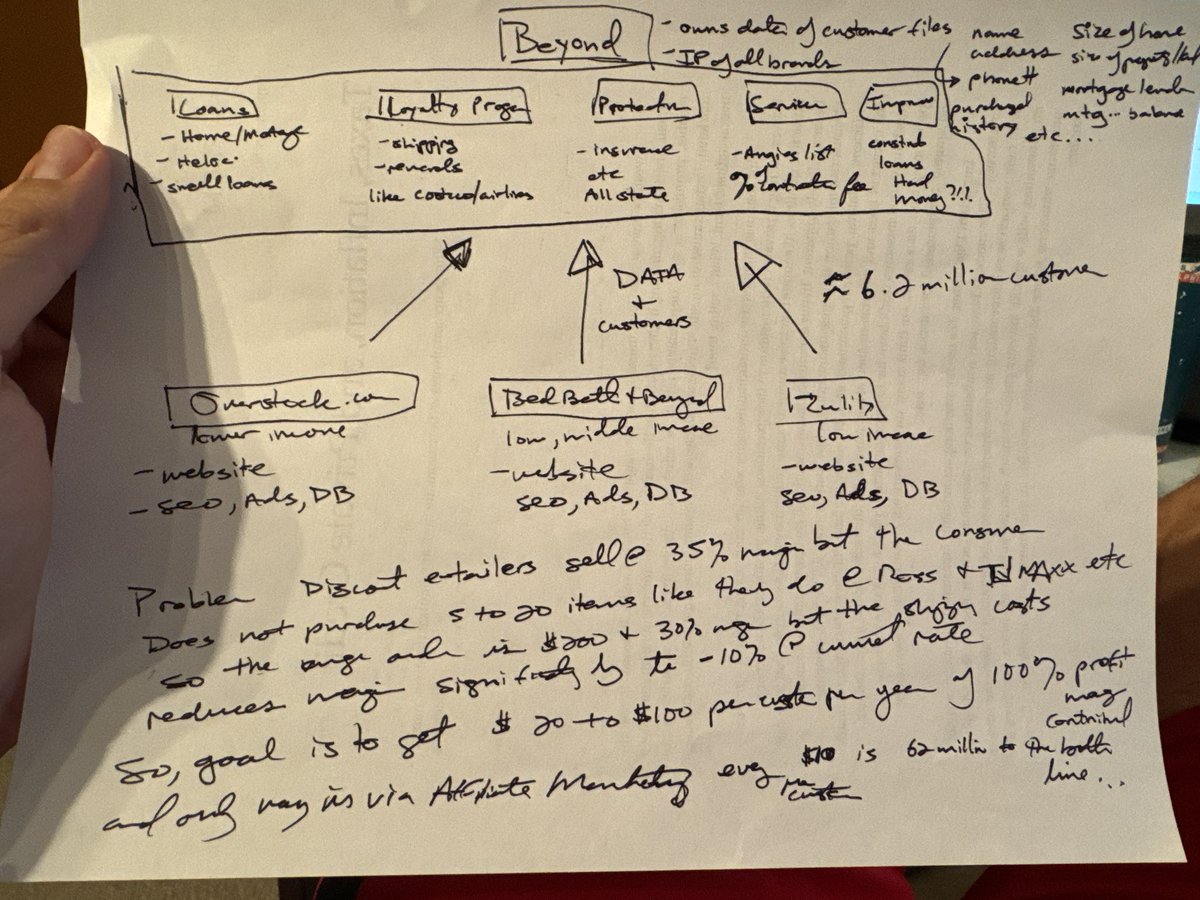 Beyond
- owns data of customer files
- IP of all brands
name
address
phone #
purchased
history
Size of home
size of
mortgage lender
mtg... balance
etc...
Loans
- Home/
- Heloc
- small loans
Loyalty Progr
- shipping
- referrals
like costco/airlines
Protection
- insurance
etc
All state
Services
- Angies list
% of contractor fee
Improv
loans
Hard
money?!!
DATA
+
customers
≈ 6.2 million customer
Overstock.com
lower income
- website
- SEO, Ads, DB
Bed Bath + Beyond
low, middle income
- website
SEO, Ads, DB
Zulily
low income
- website
SEO, Ads, DB
Problem Discount etailers sell @ 35% margin but the consumer
Does not purchase 5 to 20 items like they do @ Ross + TJ MAXX etc
so the order is $200 + 30% but the shipping costs
reduces margin significantly by to -10% @ current rate
So, goal is to get $20 to $100 per per year of 100% profit
and only way is via Affiliate Marketing every $10 is 62 million to the bottom
line...